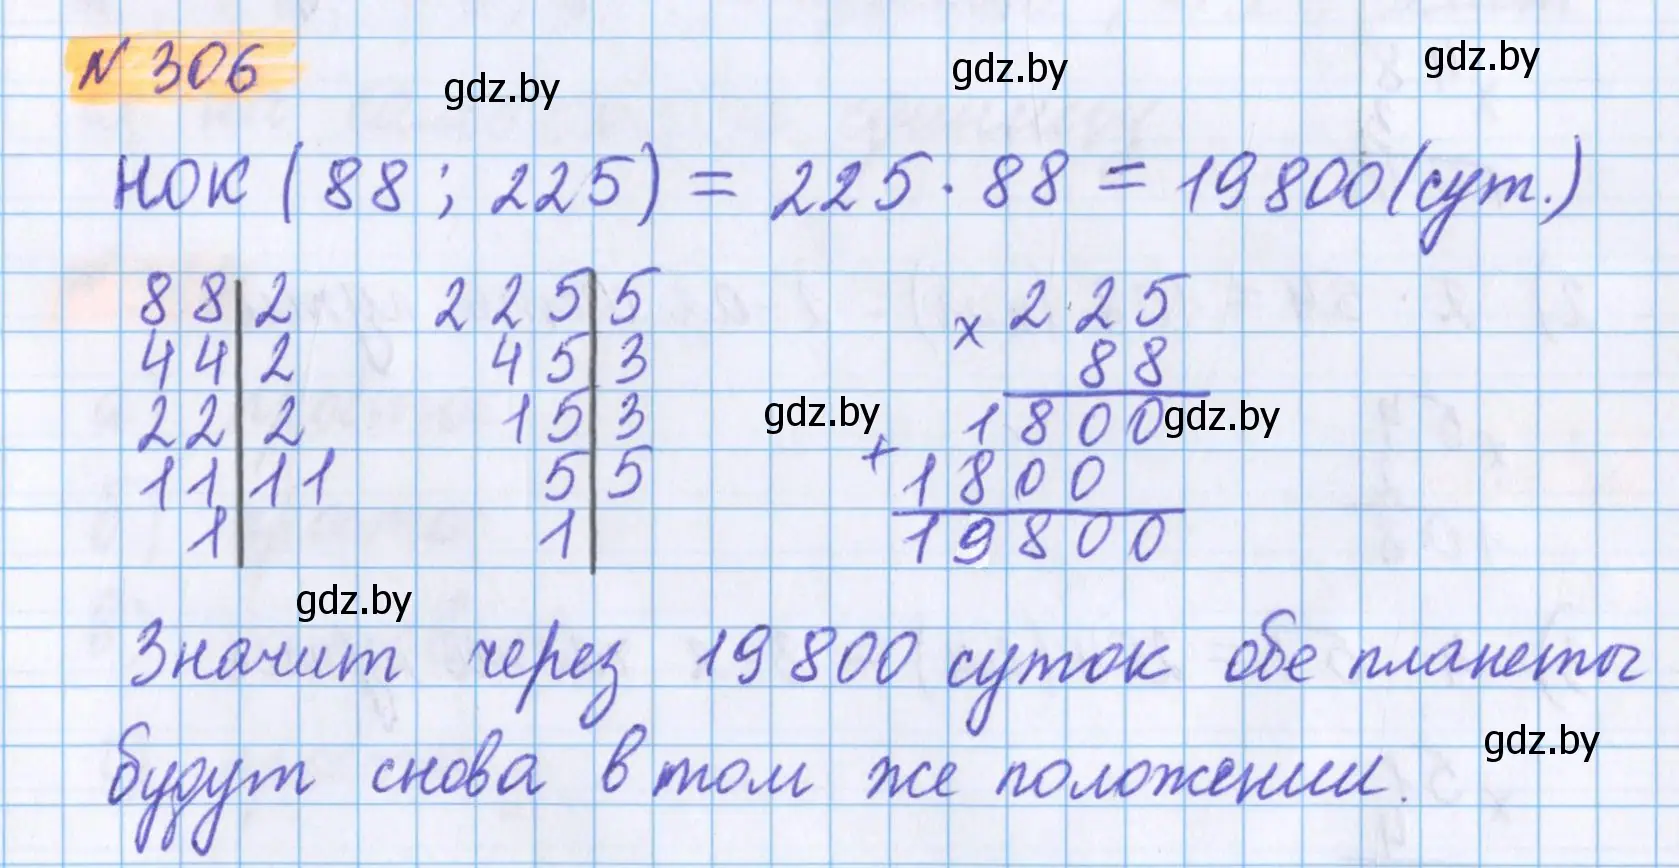 N 306
gdz.by
gdz.by
gdz.by
НОК (88; 225) = 225 · 88 = 19800 (сут.)
88 | 2 225 | 5 × 225
44 | 2 45 | 3 88
22 | 2 gdz.by 15 | 3 1800 gdz.by
11 | 11 5 | 5 + 1800
1 | 1 | 19800
gdz.by
Значит через 19800 суток обе планеты
gdz.by
будут снова в том же положении.